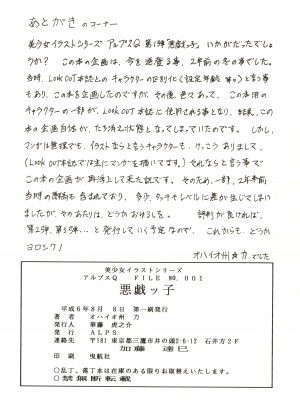 あとがき のコーナー
美少女イラストシリーズ アルプスQ 第1弾「悪戯っ子」 いかがだったでしょ
うか？ この本の企画は、今を遡る事、2年前の冬の事でした。
当時、LOOK OUT本誌とのキャラクターの区別化(設定年齢 等々)と言う事
もあり、この本を企画したのですが、その後、色々あって、この本用の
キャラクターの一部が、LOOK OUT本誌に使用される事となり、結果、この
本の企画自体が、たち消え状態となってしまっていたのです。しかし、
マンガは無理でも、イラストならと言うキャラクターも、けっこうありまして、
(LOOK OUT本誌では主にマンガを描いてます。)それならと言う事で
この本の企画が再浮上して来た訳です。そのため、一部、2年半前
当時の原稿も含まれており、多少、タッチやレベルに差が生じてしまい
ましたが、そのあたりは、どうかお許しを。 評判が良ければ、
第2弾、第3弾、… と発行していく予定なので、これからも、どうか
ヨロシク！
オハイオ州☆力でした
美少女イラストシリーズ
アルプスQ FILE NO.001
悪戯ッ子
平成6年8月 8日 第一刷発行
著者 オハイオ州 力
発行人 華藤 虎之介
発行 ALPS
連絡先 〒181 東京都三鷹市井の頭2-6-12 石井方2F
加藤 達巳
印刷 曳航社
○乱丁、落丁本は在庫のある限りお取替えいたします。
○禁無断転載